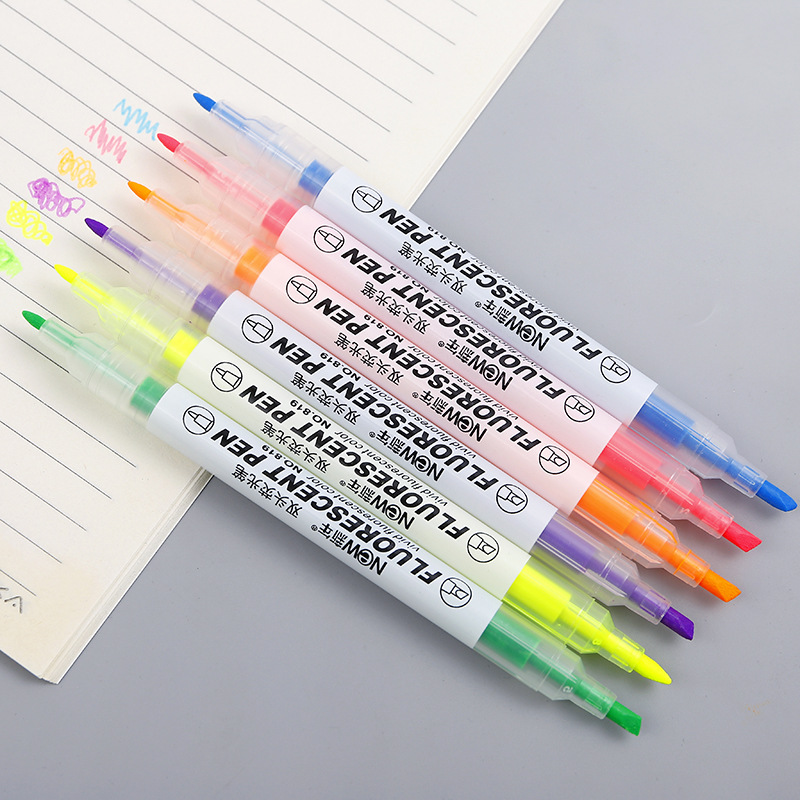 NeW新年®
FLUORESCENT PEN
双头荧光笔
NO.819
NeW新年®
vivid fluorescent color
FLUORESCENT PEN
双头荧光笔
NO.819
NeW新年®
FLUORESCENT PEN
双头荧光笔
NO.819
NeW新年®
vivid fluorescent color
FLUORESCENT PEN
双头荧光笔
NO.819
NeW新年®
vivid fluorescent color
FLUORESCENT PEN
双头荧光笔
NO.819
NeW新年®
vivid fluorescent color
FLUORESCENT PEN
双头荧光笔
NO.819